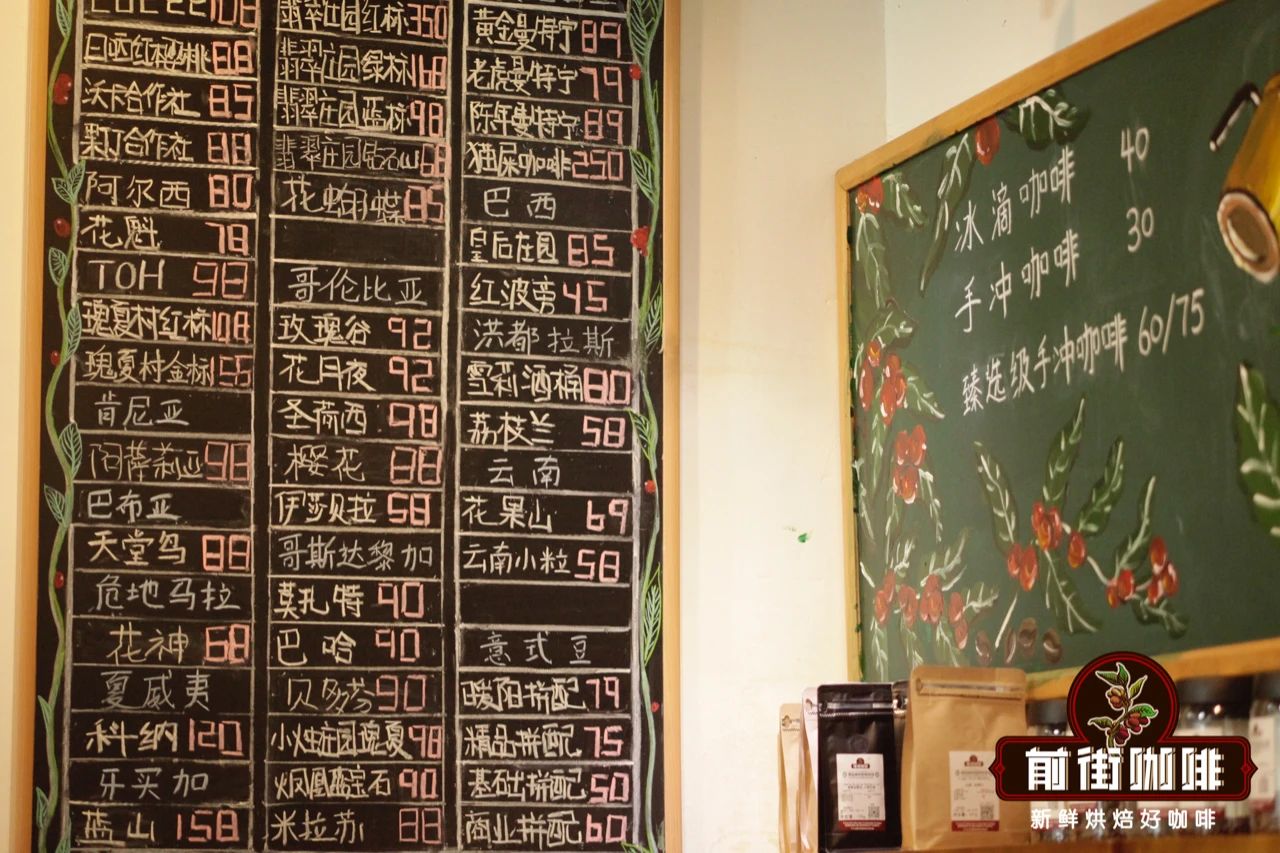 日晒红樱桃 88
沃卡合作社 85
果丁合作社 88
阿尔西 80
花魁 78
TOH 98
瑰夏村红标 108
瑰夏村金标 155
肯尼亚
阿萨莉亚 98
巴布亚
天堂鸟 88
危地马拉
花神 68
夏威夷
科纳 120
牙买加
蓝山 158
翡翠庄园红标 350
翡翠庄园绿标 168
翡翠庄园蓝标 98
翡翠庄园钻石山 68
花蝴蝶 85
哥伦比亚
玫瑰谷 92
花月夜 92
圣荷西 98
樱花 88
伊莎贝拉 58
哥斯达黎加
莫扎特 90
巴哈 90
贝多芬 90
小烛庄园瑰夏 98
凤凰蓝宝石 90
米拉苏 88
黄金曼特宁 89
老虎曼特宁 79
陈年曼特宁 89
猫屎咖啡 250
巴西
皇后庄园 85
红波旁 45
洪都拉斯
雪莉酒桶 80
荔枝兰 58
云南
花果山 69
云南小粒 58
意式豆
暖阳拼配 79
精品拼配 75
基础拼配 50
商业拼配 60
冰滴咖啡 40
手冲咖啡 30
臻选级手冲咖啡 60/75
前街咖啡
新鲜烘焙好咖啡